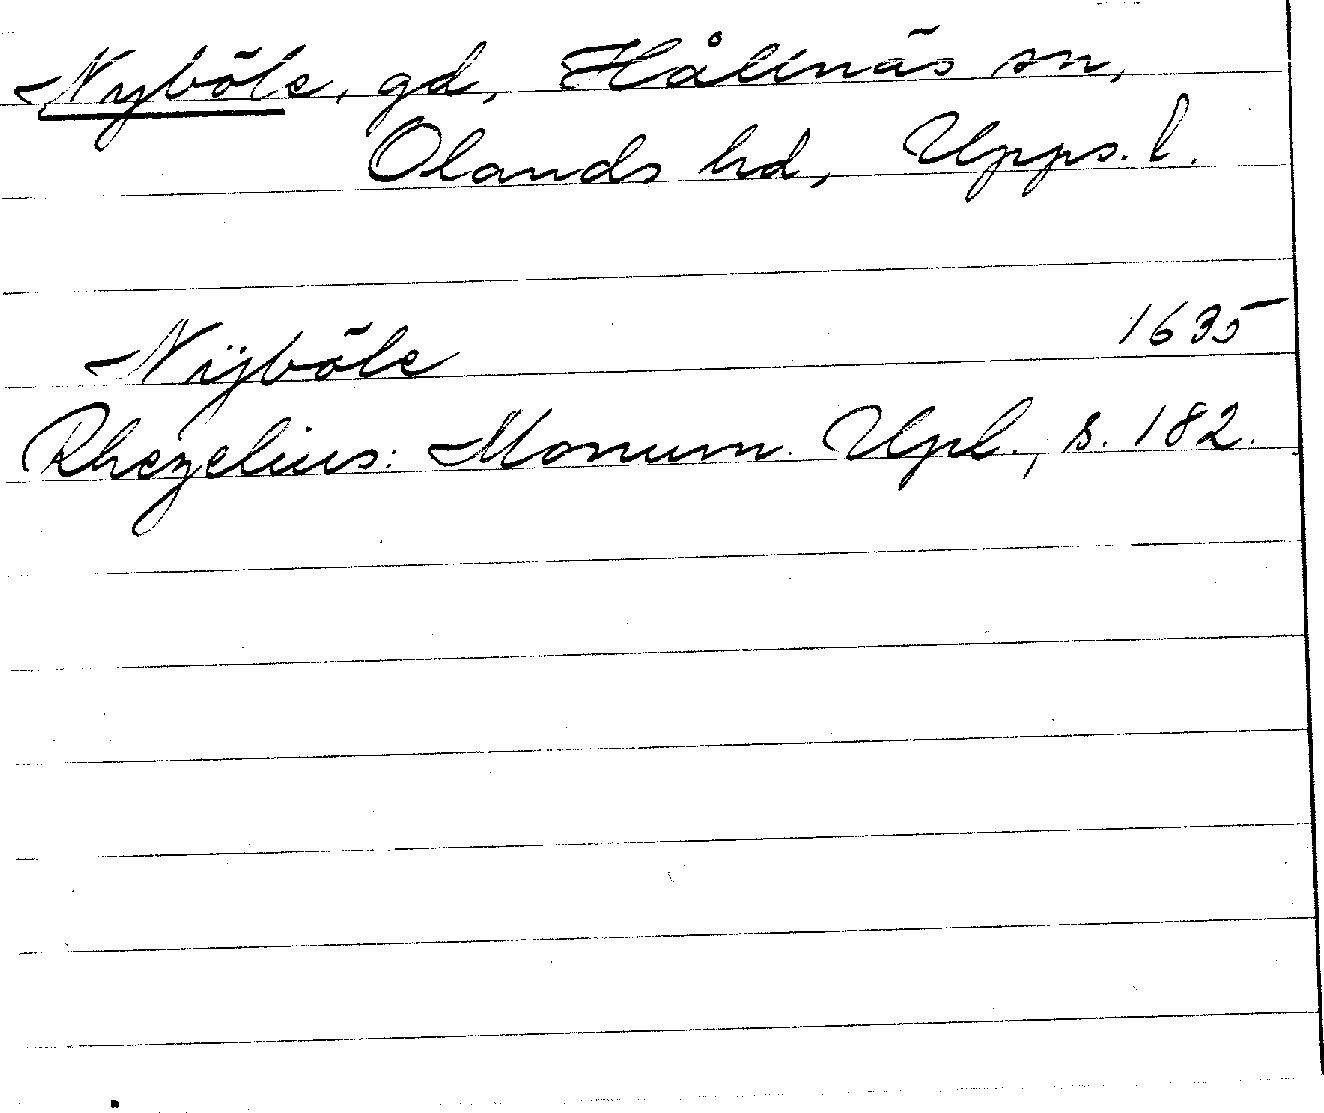 Nyböle, gd, Hållnäs sn,
Olands hd, Upps. l.
Nÿböle 1635
Rhezelius: Monum. Upl., s. 182.